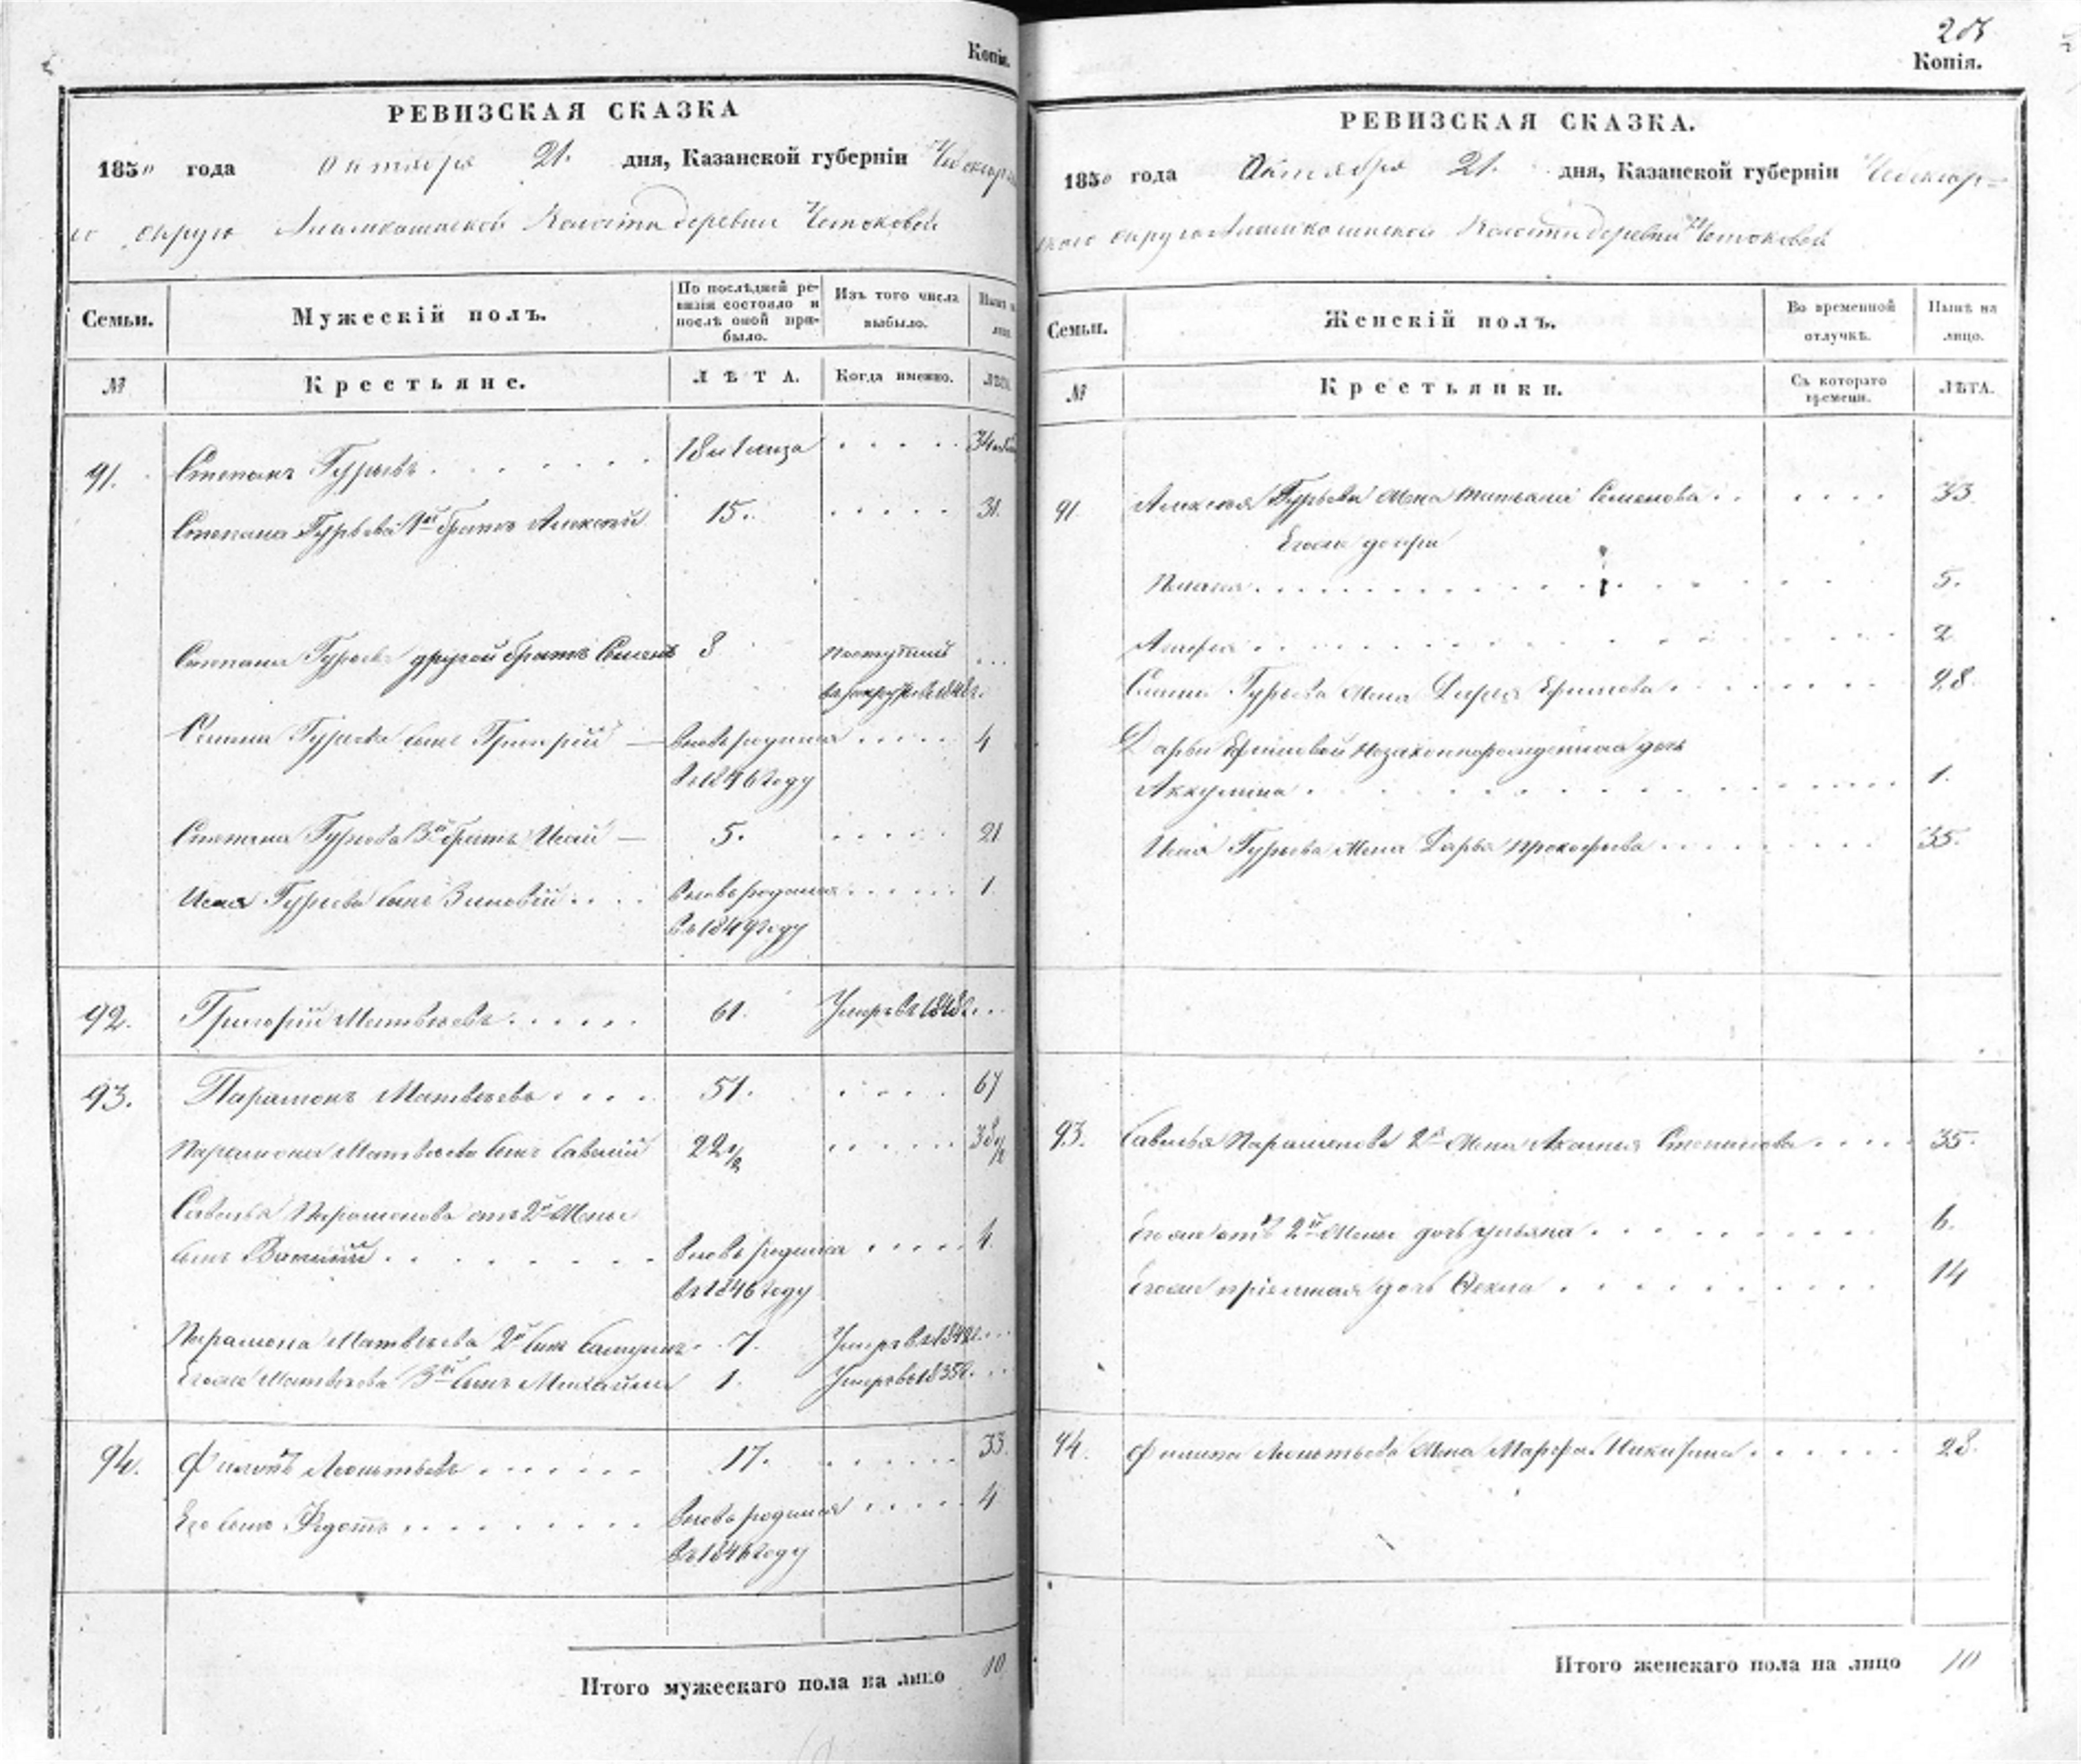 Копія.
РЕВИЗСКАЯ СКАЗКА
1850 года Октября 21. дня, Казанской губерніи Чебоксар
го округа Волости деревни
Семьи.
Мужескій полъ.
По послѣдней ре-
визіи состояло и
послѣ оной при-
было.
Изъ того числа
выбыло.
Нынѣ на
лицо.
№
Крестьяне.
ЛѢТА.
Когда именно.
ЛѢТА.
91. Степанъ Гурьевъ 18 34
Степана Гурьева 1й братъ Алексей 15. 31.
Степана Гурьева другой братъ Семенъ 8 Поступилъ
в рекруты в
Семена Гурьева сынъ Григорий вновь родился 4
въ 1846 году
Степана Гурьева 3й братъ Исай 5. 21
Исая Гурьева сынъ Зиновий вновь родился 1.
въ 1849 году
92. Григорий Матвеевъ 61. Умеръ въ
93. Парамонъ Матвеевъ 51. 67
Парамона Матвеева сынъ Савелий 22 1/2 38 1/2
Савелья Парамонова отъ 2й жены
сынъ Василий вновь родился 4.
въ 1846 году
Парамона Матвеева 2й сынъ 7. Умеръ въ
Его же Матвеева 3й сынъ Михайла 1. Умеръ въ 1835 г.
94. Филипъ Леонтьевъ 17. 33.
Его сынъ Федотъ вновь родился 4
въ 1846 году
Итого мужескаго пола на лицо 10
Копія.
РЕВИЗСКАЯ СКАЗКА.
1850 года Октября 21. дня, Казанской губерніи Чебоксар-
скаго округа Волости деревни
Семьи.
Женскій полъ.
Во временной
отлучкѣ.
Нынѣ на
лицо.
№
Крестьянки.
Съ котораго
времени.
ЛѢТА.
91 Алексея Гурьева жена Семенова 33
Его же дочери
5.
2
Семена Гурьева жена Дарья Ефимова 28.
Дарьи Ефимовой незаконнорожденная дочь
Аккулина 1.
Исая Гурьева жена Дарья Прокофьева 35.
93. Савелья Парамонова 2я жена Степанова 35.
Его же отъ 2й жены дочь Ульяна 6.
Его же приемная дочь Фекла 14
94. Филипа Леонтьева жена Марфа Никифорова 28.
Итого женскаго пола на лицо 10